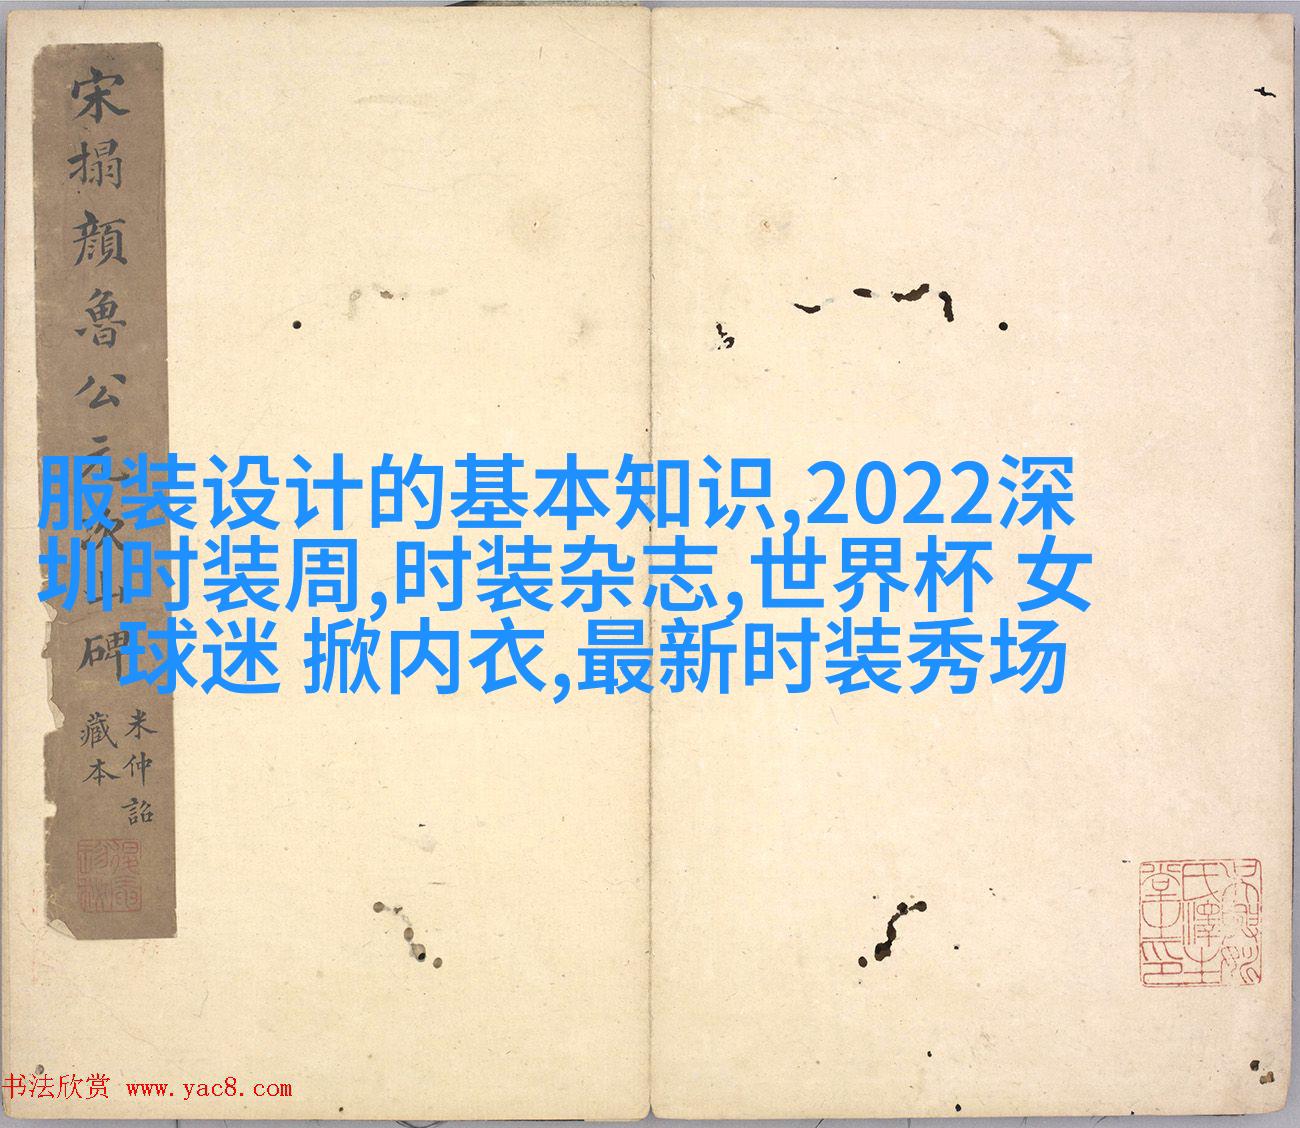 宋搨顏魯公元次山碑
米仲詔
藏本
服装设计的基本知识,2022深
圳时装周,时装杂志,世界杯 女
球迷 掀内衣,最新时装秀场
书法欣赏 www.yac8.com